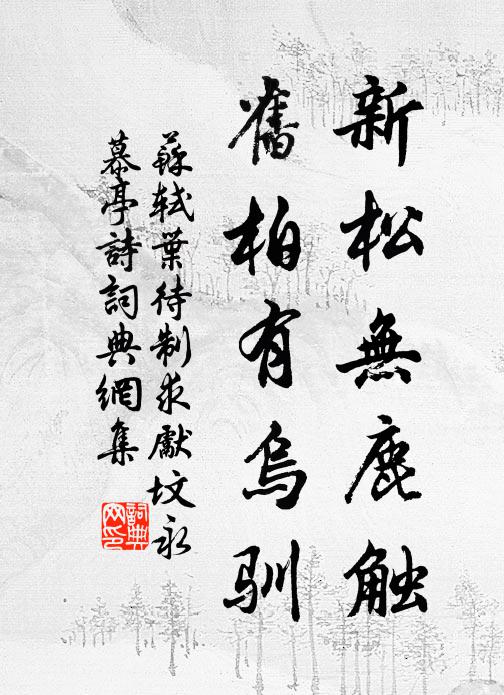 新松無鹿触
舊柏有烏驯
蘇軾葉待制求獻墳永
慕亭詩詞典網集
詞典
网印